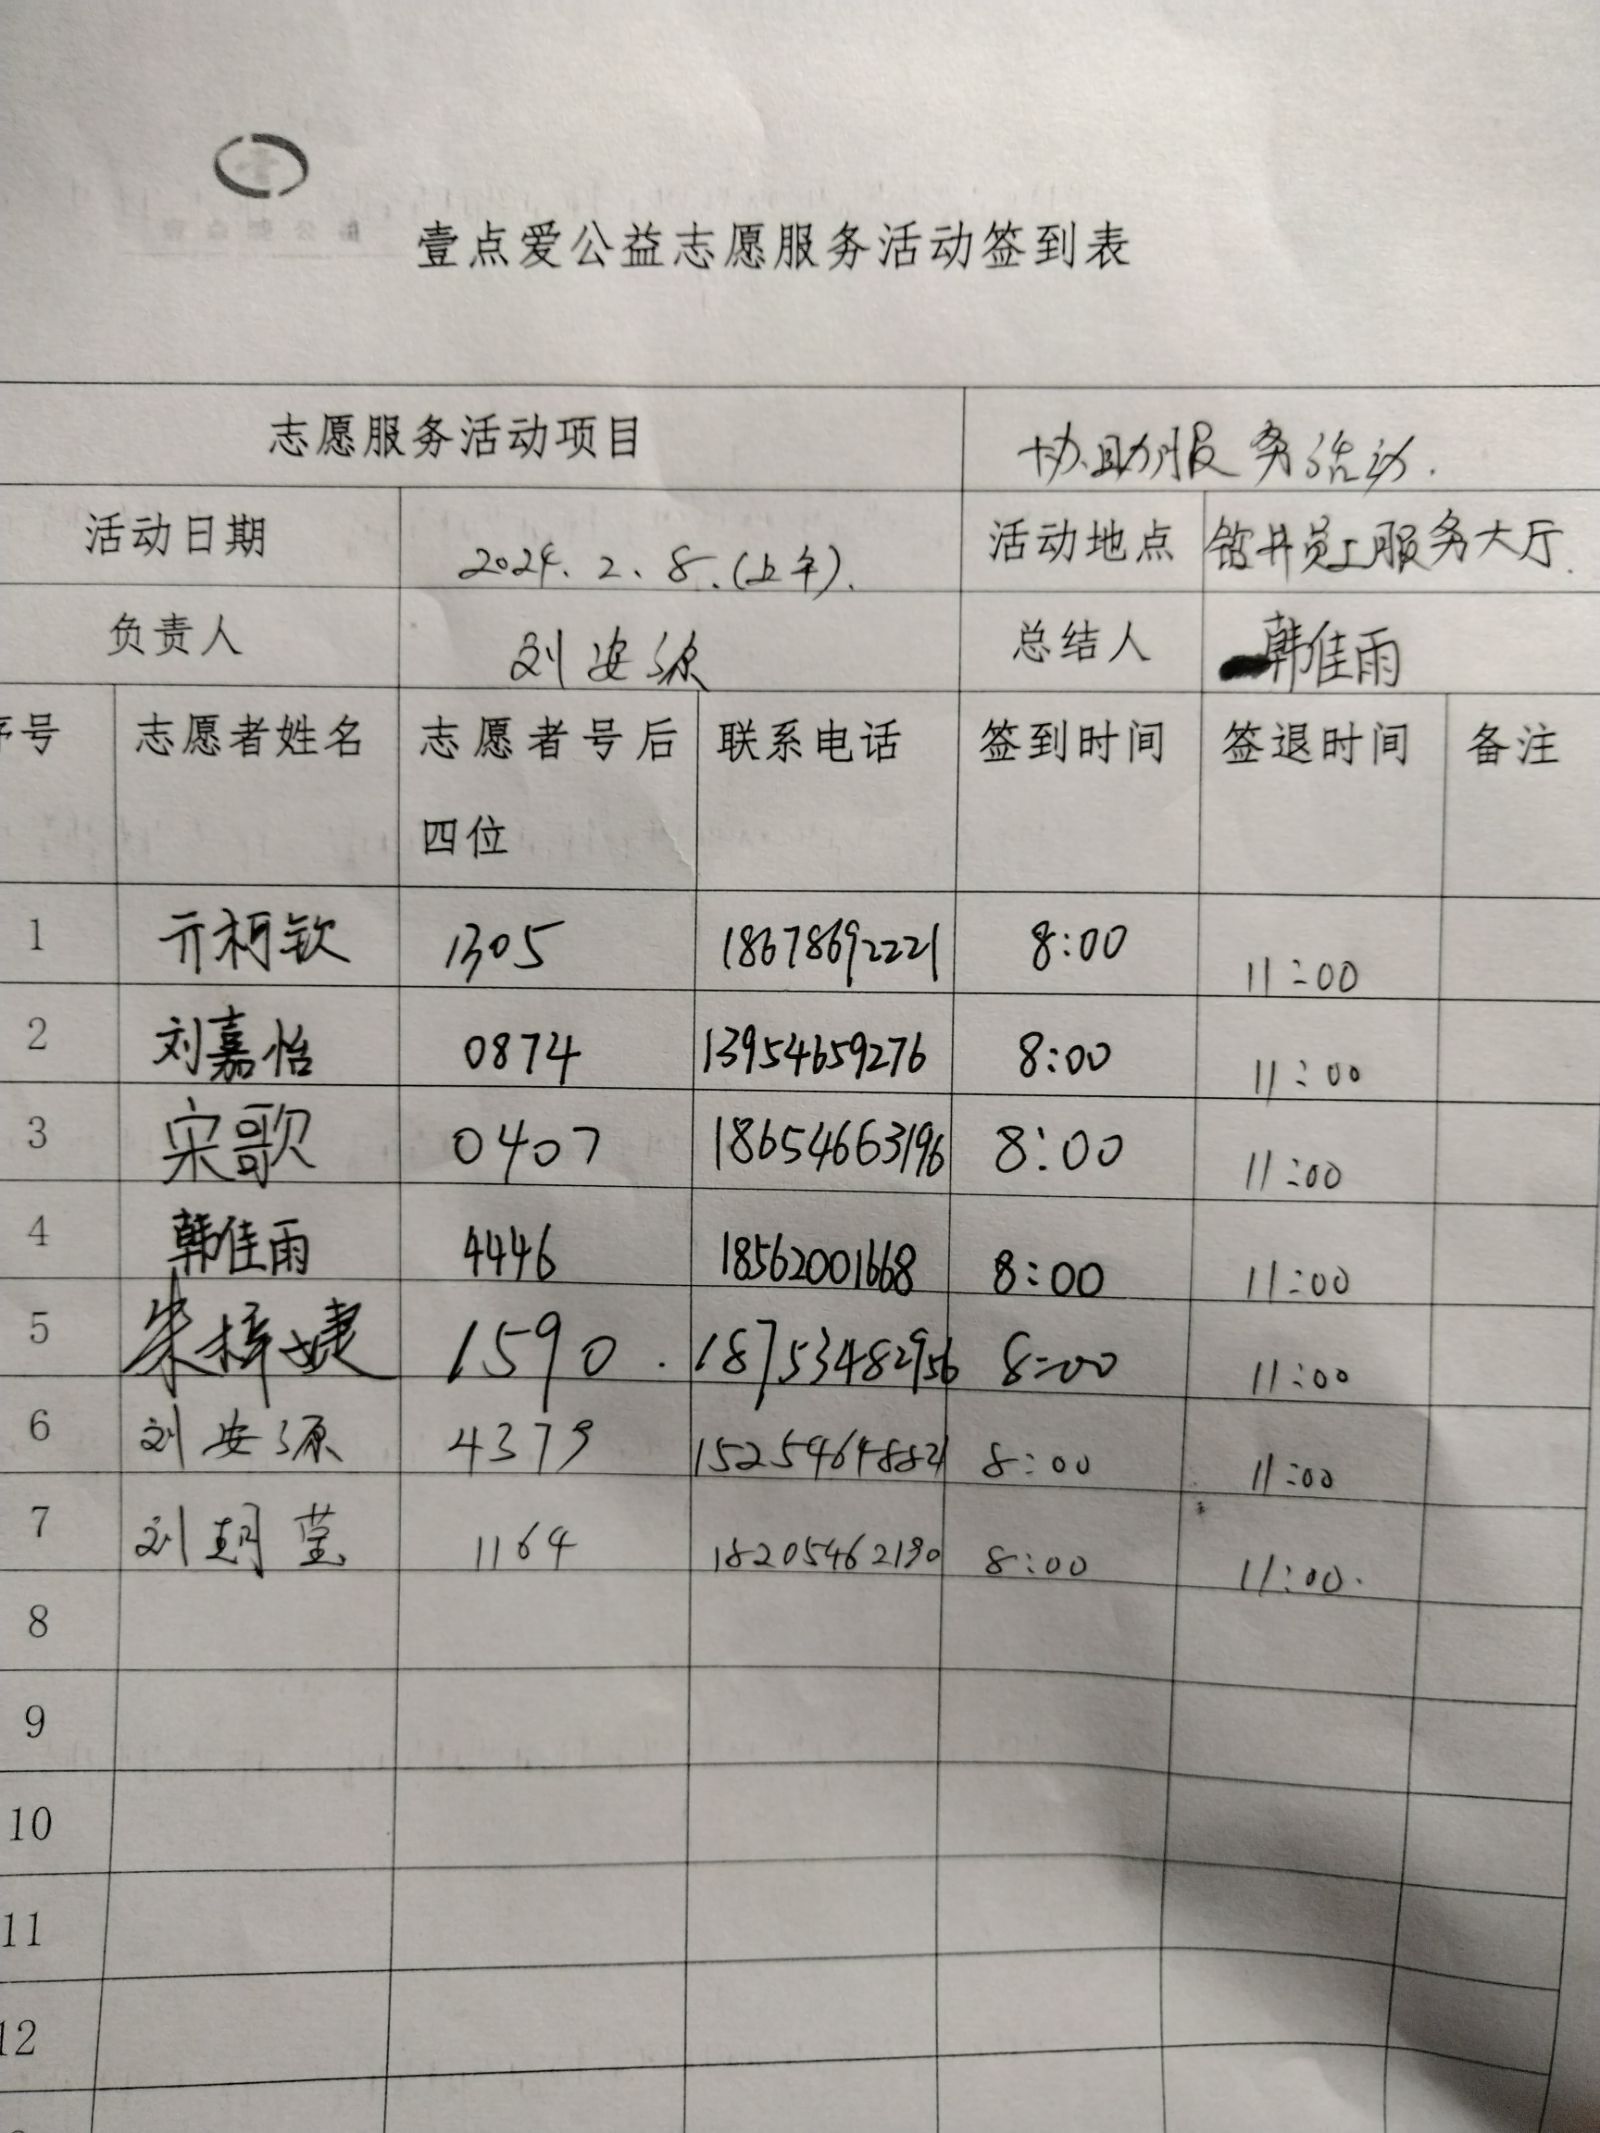 壹点爱公益志愿服务活动签到表
志愿服务活动项目 协助服务活动.
活动日期 2024.2.8.(上午). 活动地点 钻井员工服务大厅.
负责人 刘安源 总结人 韩佳雨
序号 志愿者姓名 志愿者号后四位 联系电话 签到时间 签退时间 备注
1 亓柯钦 1305 18678692221 8:00 11:00
2 刘嘉怡 0874 13954659276 8:00 11:00
3 宋歌 0407 18654663196 8:00 11:00
4 韩佳雨 4446 18562001668 8:00 11:00
5 朱梓婕 1590. 18753482956 8:00 11:00
6 刘安源 4379 8:00 11:00
7 刘玥莹 1164 18205462190 8:00 11:00.
8
9
10
11
12